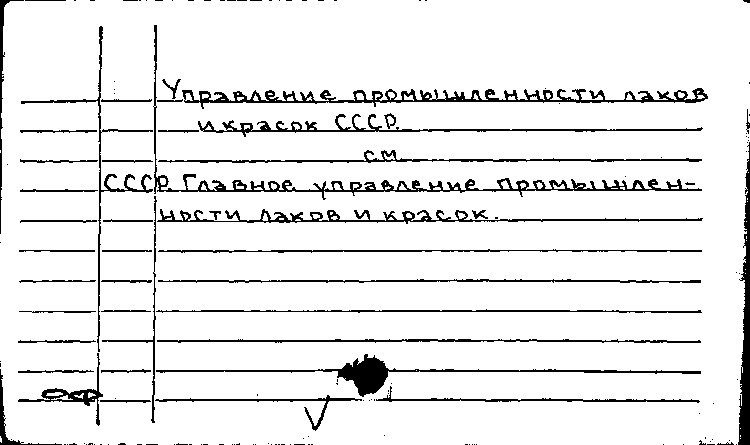 Управление промышленности лаков
и красок СССР.
см
СССР. Главное управление промышлен-
ности лаков и красок.
оф